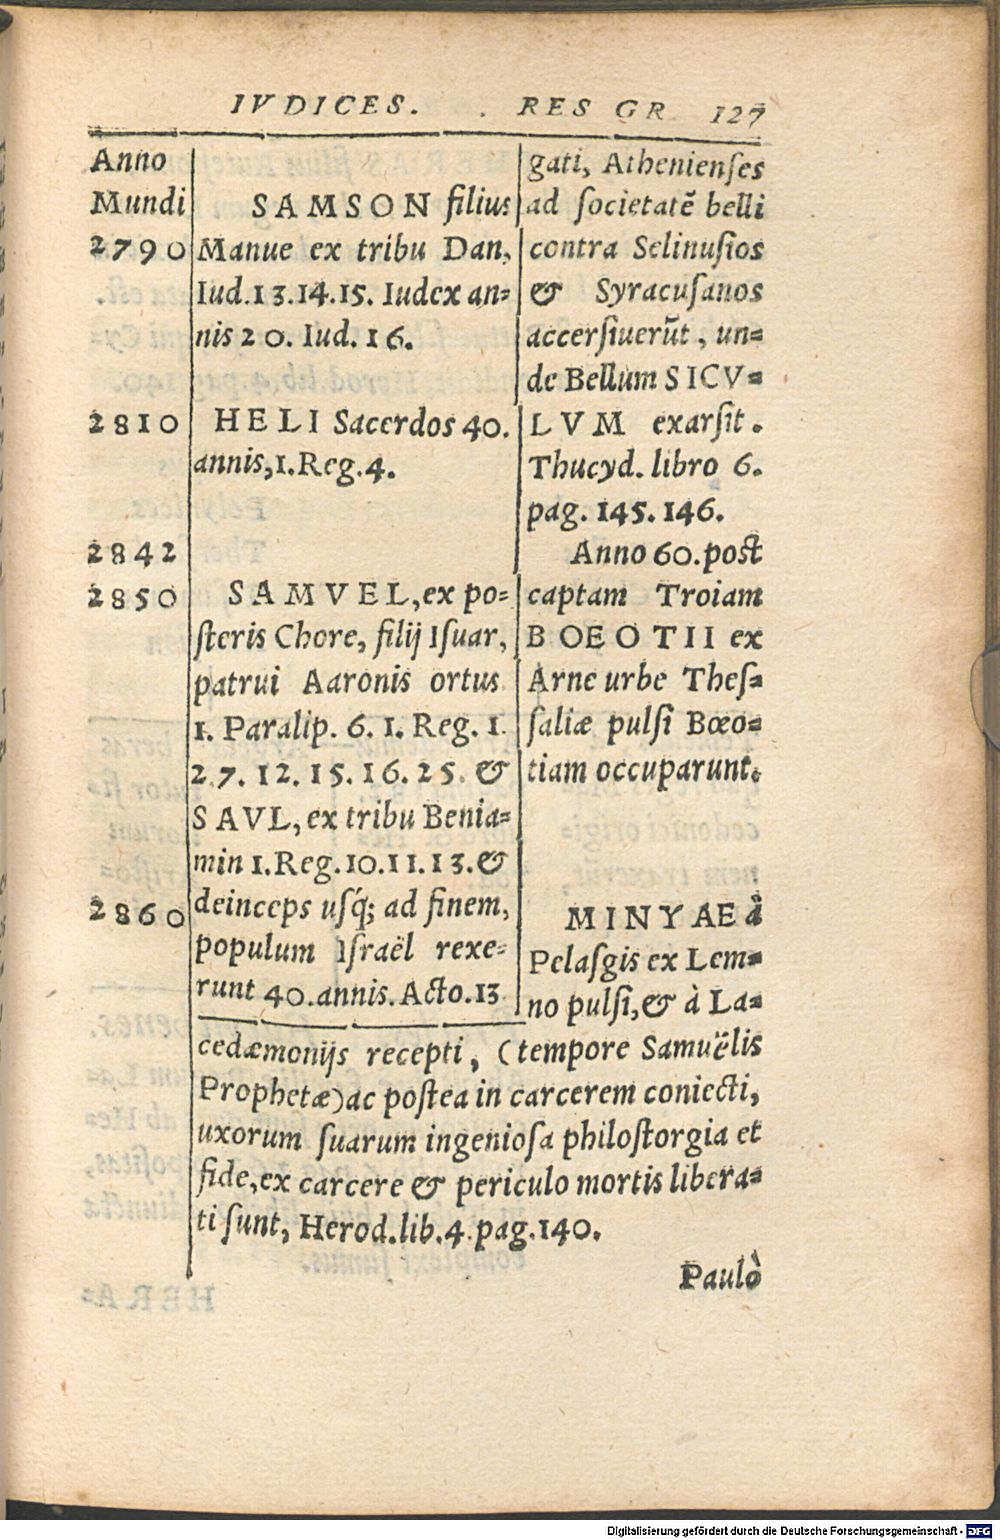 IVDICES. . RES GR 127
Anno
Mundi
2790
2810
2842
2850
2860
SAMSON filius
Manue ex tribu Dan,
Iud.13.14.15. Iudex an-
nis 20. Iud. 16.
HELI Sacerdos 40.
annis,1.Reg.4.
SAMVEL,ex po-
steris Chore, filij Isuar,
patrui Aaronis ortus
1. Paralip. 6. 1. Reg. 1.
2.7. 12. 15. 16. 25. &
SAVL, ex tribu Benia-
min 1.Reg.10.11.13.&
deinceps usq́; ad finem,
populum Israël rexe-
runt 40.annis.Acto.13
gati, Athenienses
ad societatẽ belli
contra Selinusios
& Syracusanos
accersiuerũt, un-
de Bellum SICV-
LVM exarsit.
Thucyd. libro 6.
pag. 145. 146.
Anno 60. post
captam Troiam
BOEOTII ex
Arne urbe Thes-
saliæ pulsi Bœo-
tiam occuparunt.
MINYAE à
Pelasgis ex Lem-
no pulsi,& à La-
cedæmonijs recepti, (tempore Samuëlis
Prophetæ) ac postea in carcerem coniecti,
uxorum suarum ingeniosa philostorgia et
fide,ex carcere & periculo mortis libera-
ti sunt, Herod.lib.4.pag.140.
Paulò
Digitalisierung gefördert durch die Deutsche Forschungsgemeinschaft - DFG